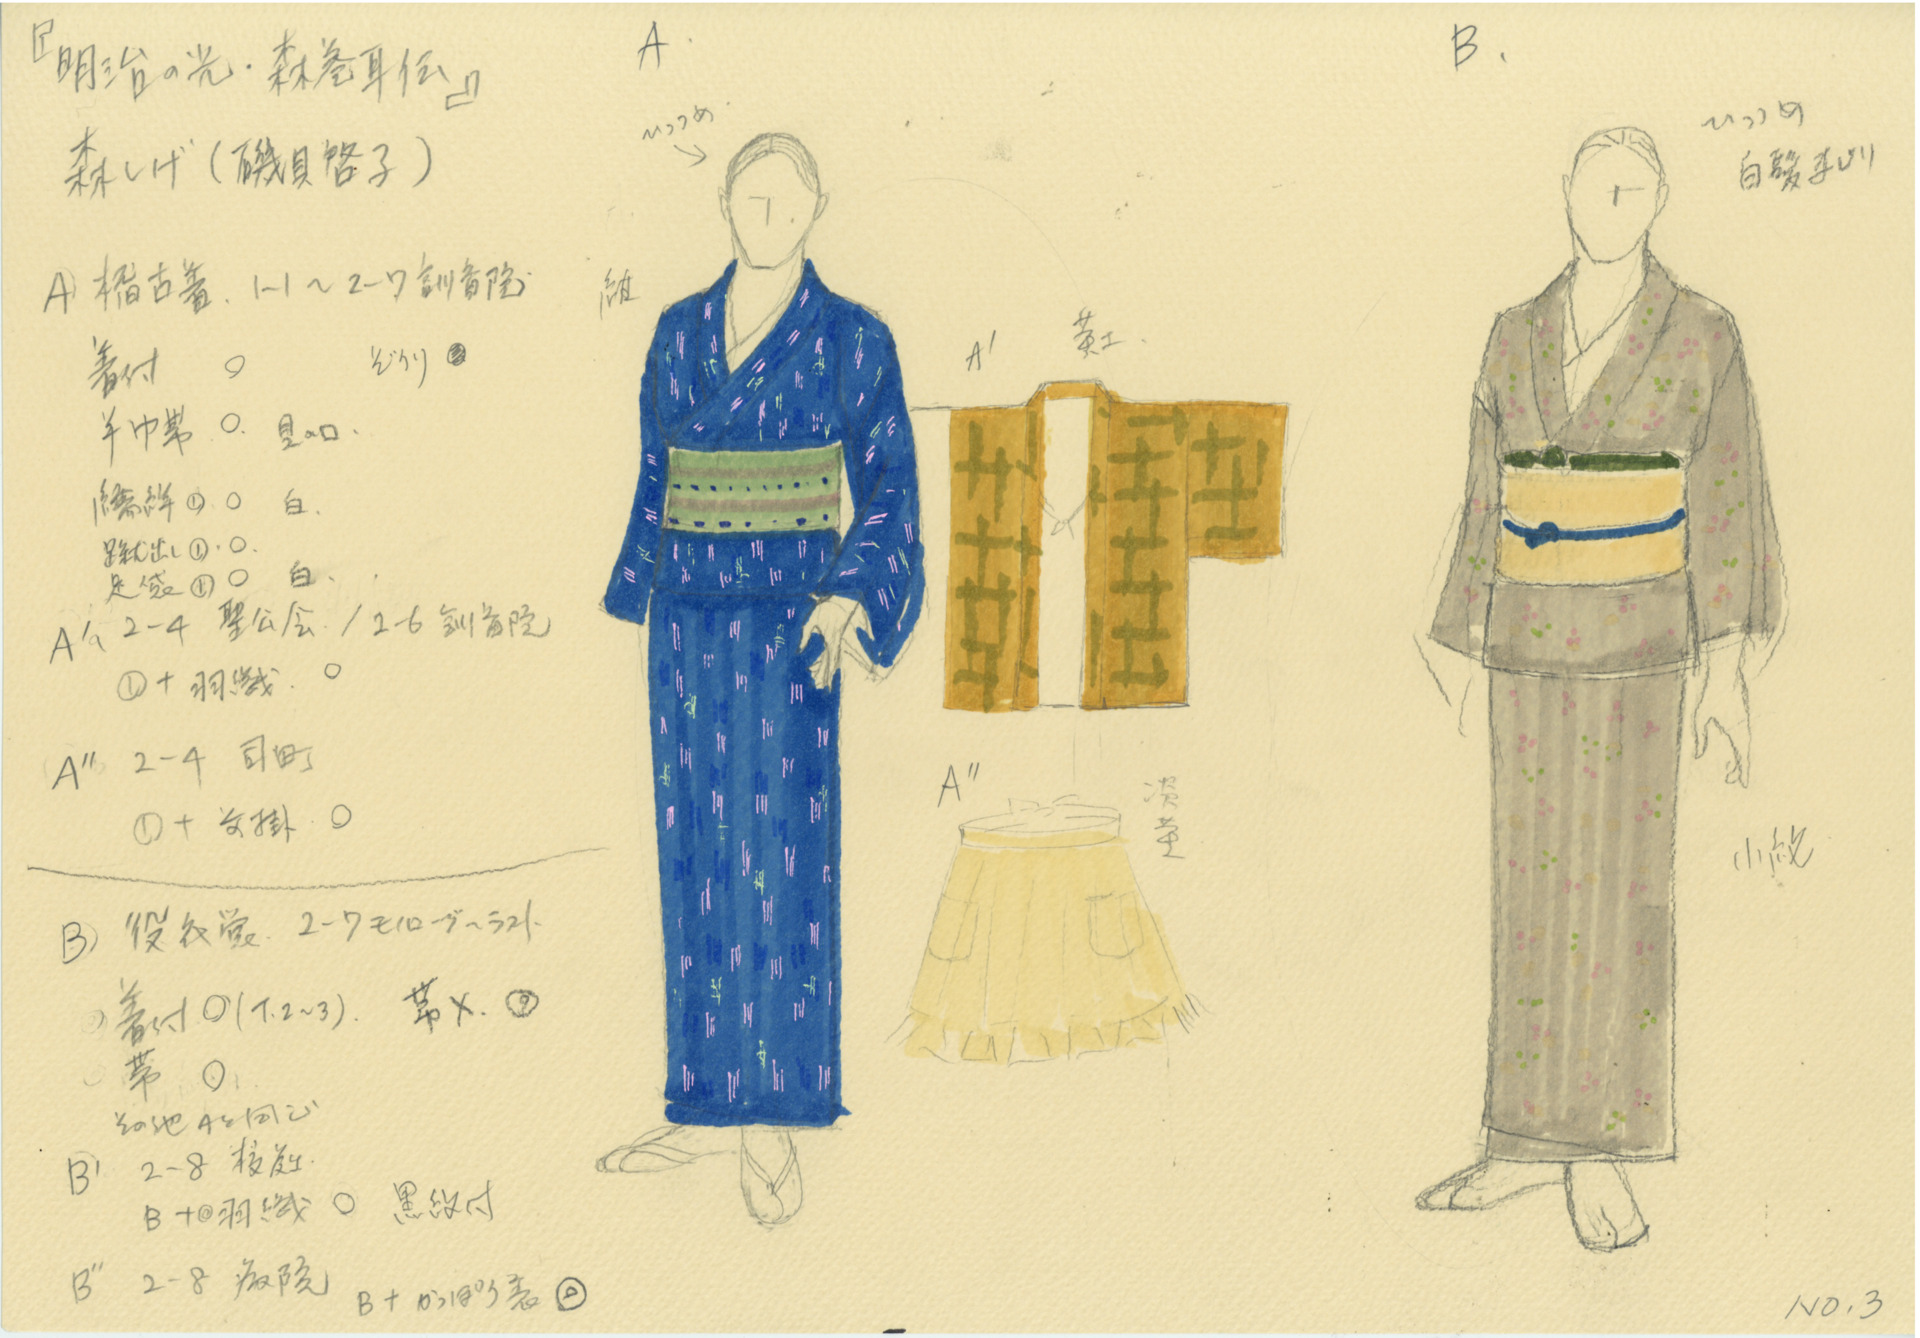 『明治の光・森巻耳伝』
森しげ(磯貝啓子)
A) 稽古着. 1-1〜2-7 訓盲院
着付 ○ ぞうり
半巾帯 ○. 貝の口.
襦袢① ○ 白.
蹴出し①. ○.
足袋① ○ 白.
A' 2-4 聖公会 / 2-6 訓盲院
①+羽織. ○
A" 2-4
①+前掛. ○
B) 役衣裳. 2-7 モノローグ〜ラスト.
着付 ○(T.2〜3). 帯〆.
帯 ○
その他 Aと同じ
B' 2-8
B+羽織 ○ 黒紋付
B" 2-8 病院
B+かっぽう着
A.
ひっつめ
紬
A'
A"
B.
ひっつめ
白髪まじり
小紋
NO.3